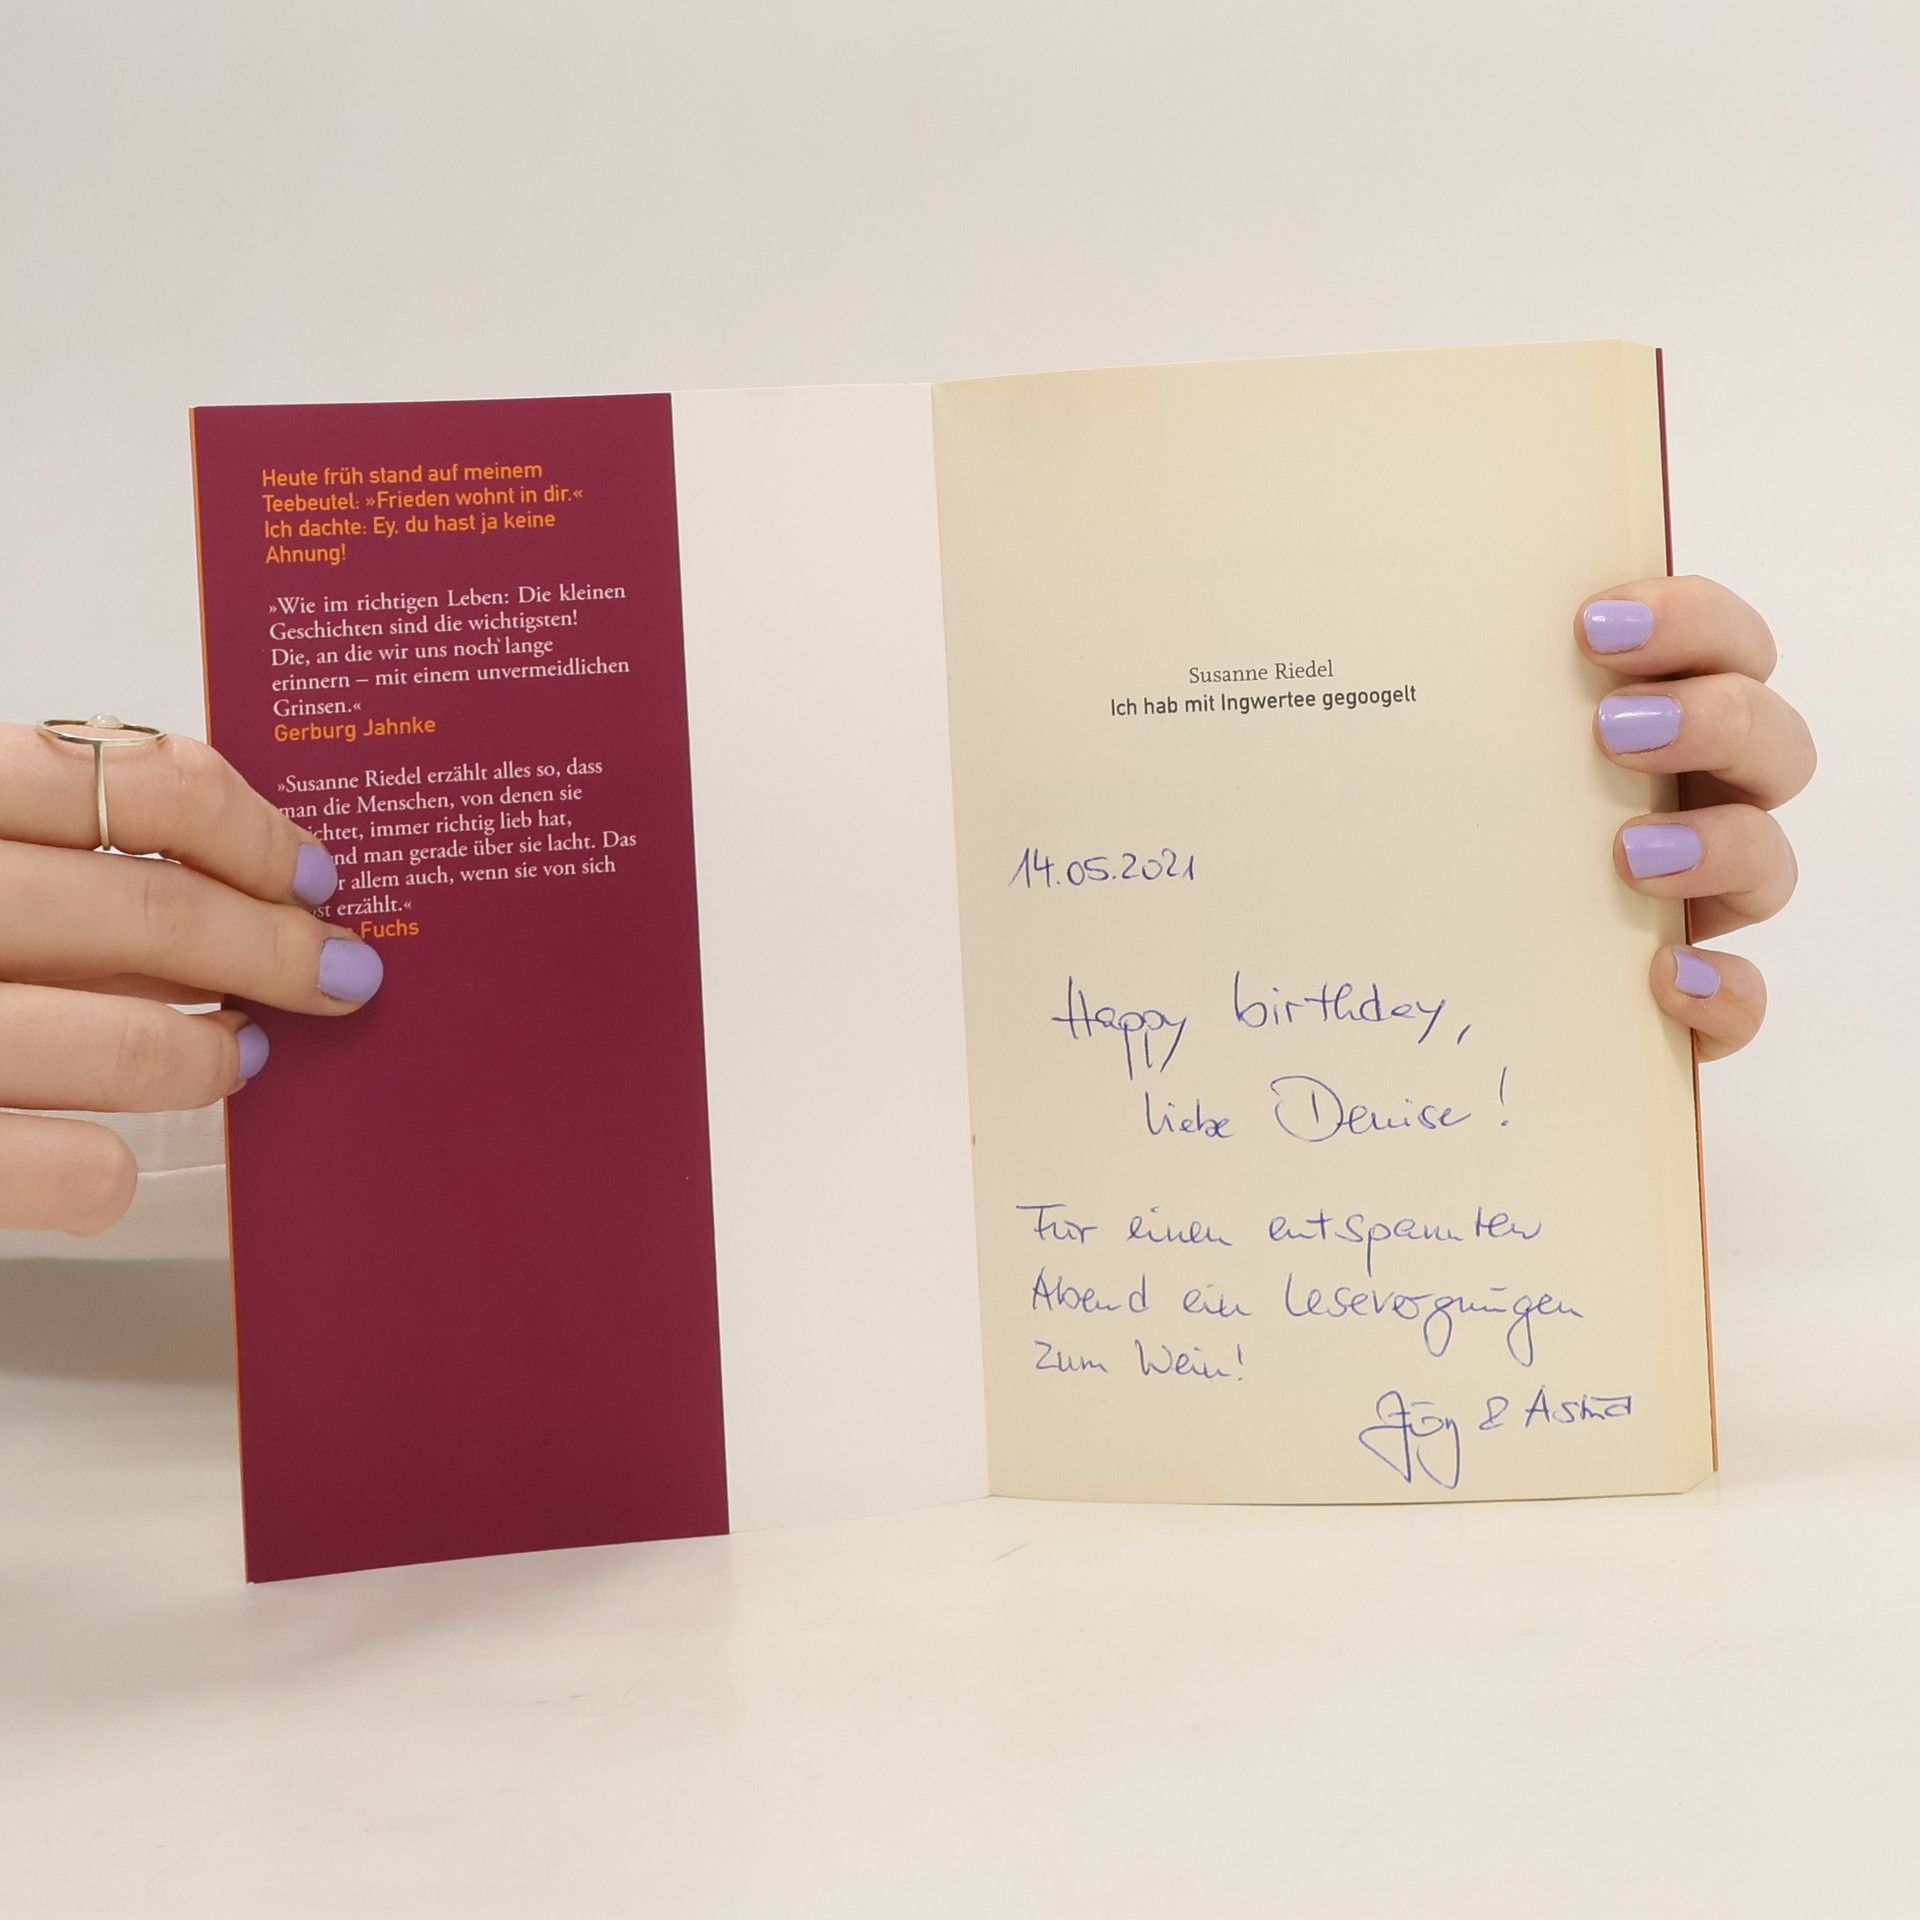 Heute früh stand auf meinem
Teebeutel: »Frieden wohnt in dir.«
Ich dachte: Ey, du hast ja keine
Ahnung!
»Wie im richtigen Leben: Die kleinen
Geschichten sind die wichtigsten!
Die, an die wir uns noch lange
erinnern – mit einem unvermeidlichen
Grinsen.«
Gerburg Jahnke
»Susanne Riedel erzählt alles so, dass
man die Menschen, von denen sie
immer richtig lieb hat,
man gerade über sie lacht. Das
allem auch, wenn sie von sich
erzählt.«
Fuchs
Susanne Riedel
Ich hab mit Ingwertee gegoogelt
14.05.2021
Happy birthday,
liebe Denise!
Für einen entspannten
Abend ein Lesevergnügen
zum Wein!
Jörg & Astrid